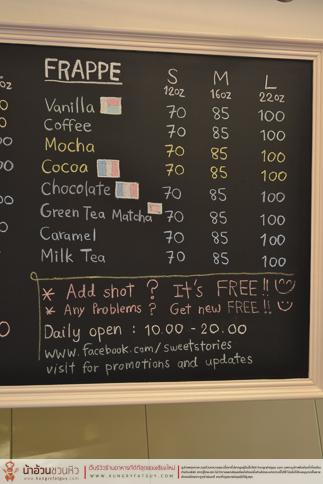 FRAPPE S M L
oz 12oz 16oz 22oz
Vanilla 70 85 100
Coffee 70 85 100
Mocha 70 85 100
Cocoa 70 85 100
Chocolate 70 85 100
Green Tea Matcha 70 85 100
Caramel 70 85 100
Milk Tea 70 85 100
* Add shot ? It's FREE!!
* Any Problems ? Get new FREE!!
Daily open : 10.00 - 20.00
www.facebook.com/sweetstories
visit for promotions and updates
น้าอ้วนชวนหิว
www.hungryfatguy.com
เว็บรีวิวร้านอาหารที่ดีที่สุดของเชียงใหม่
WWW.HUNGRYFATGUY.COM